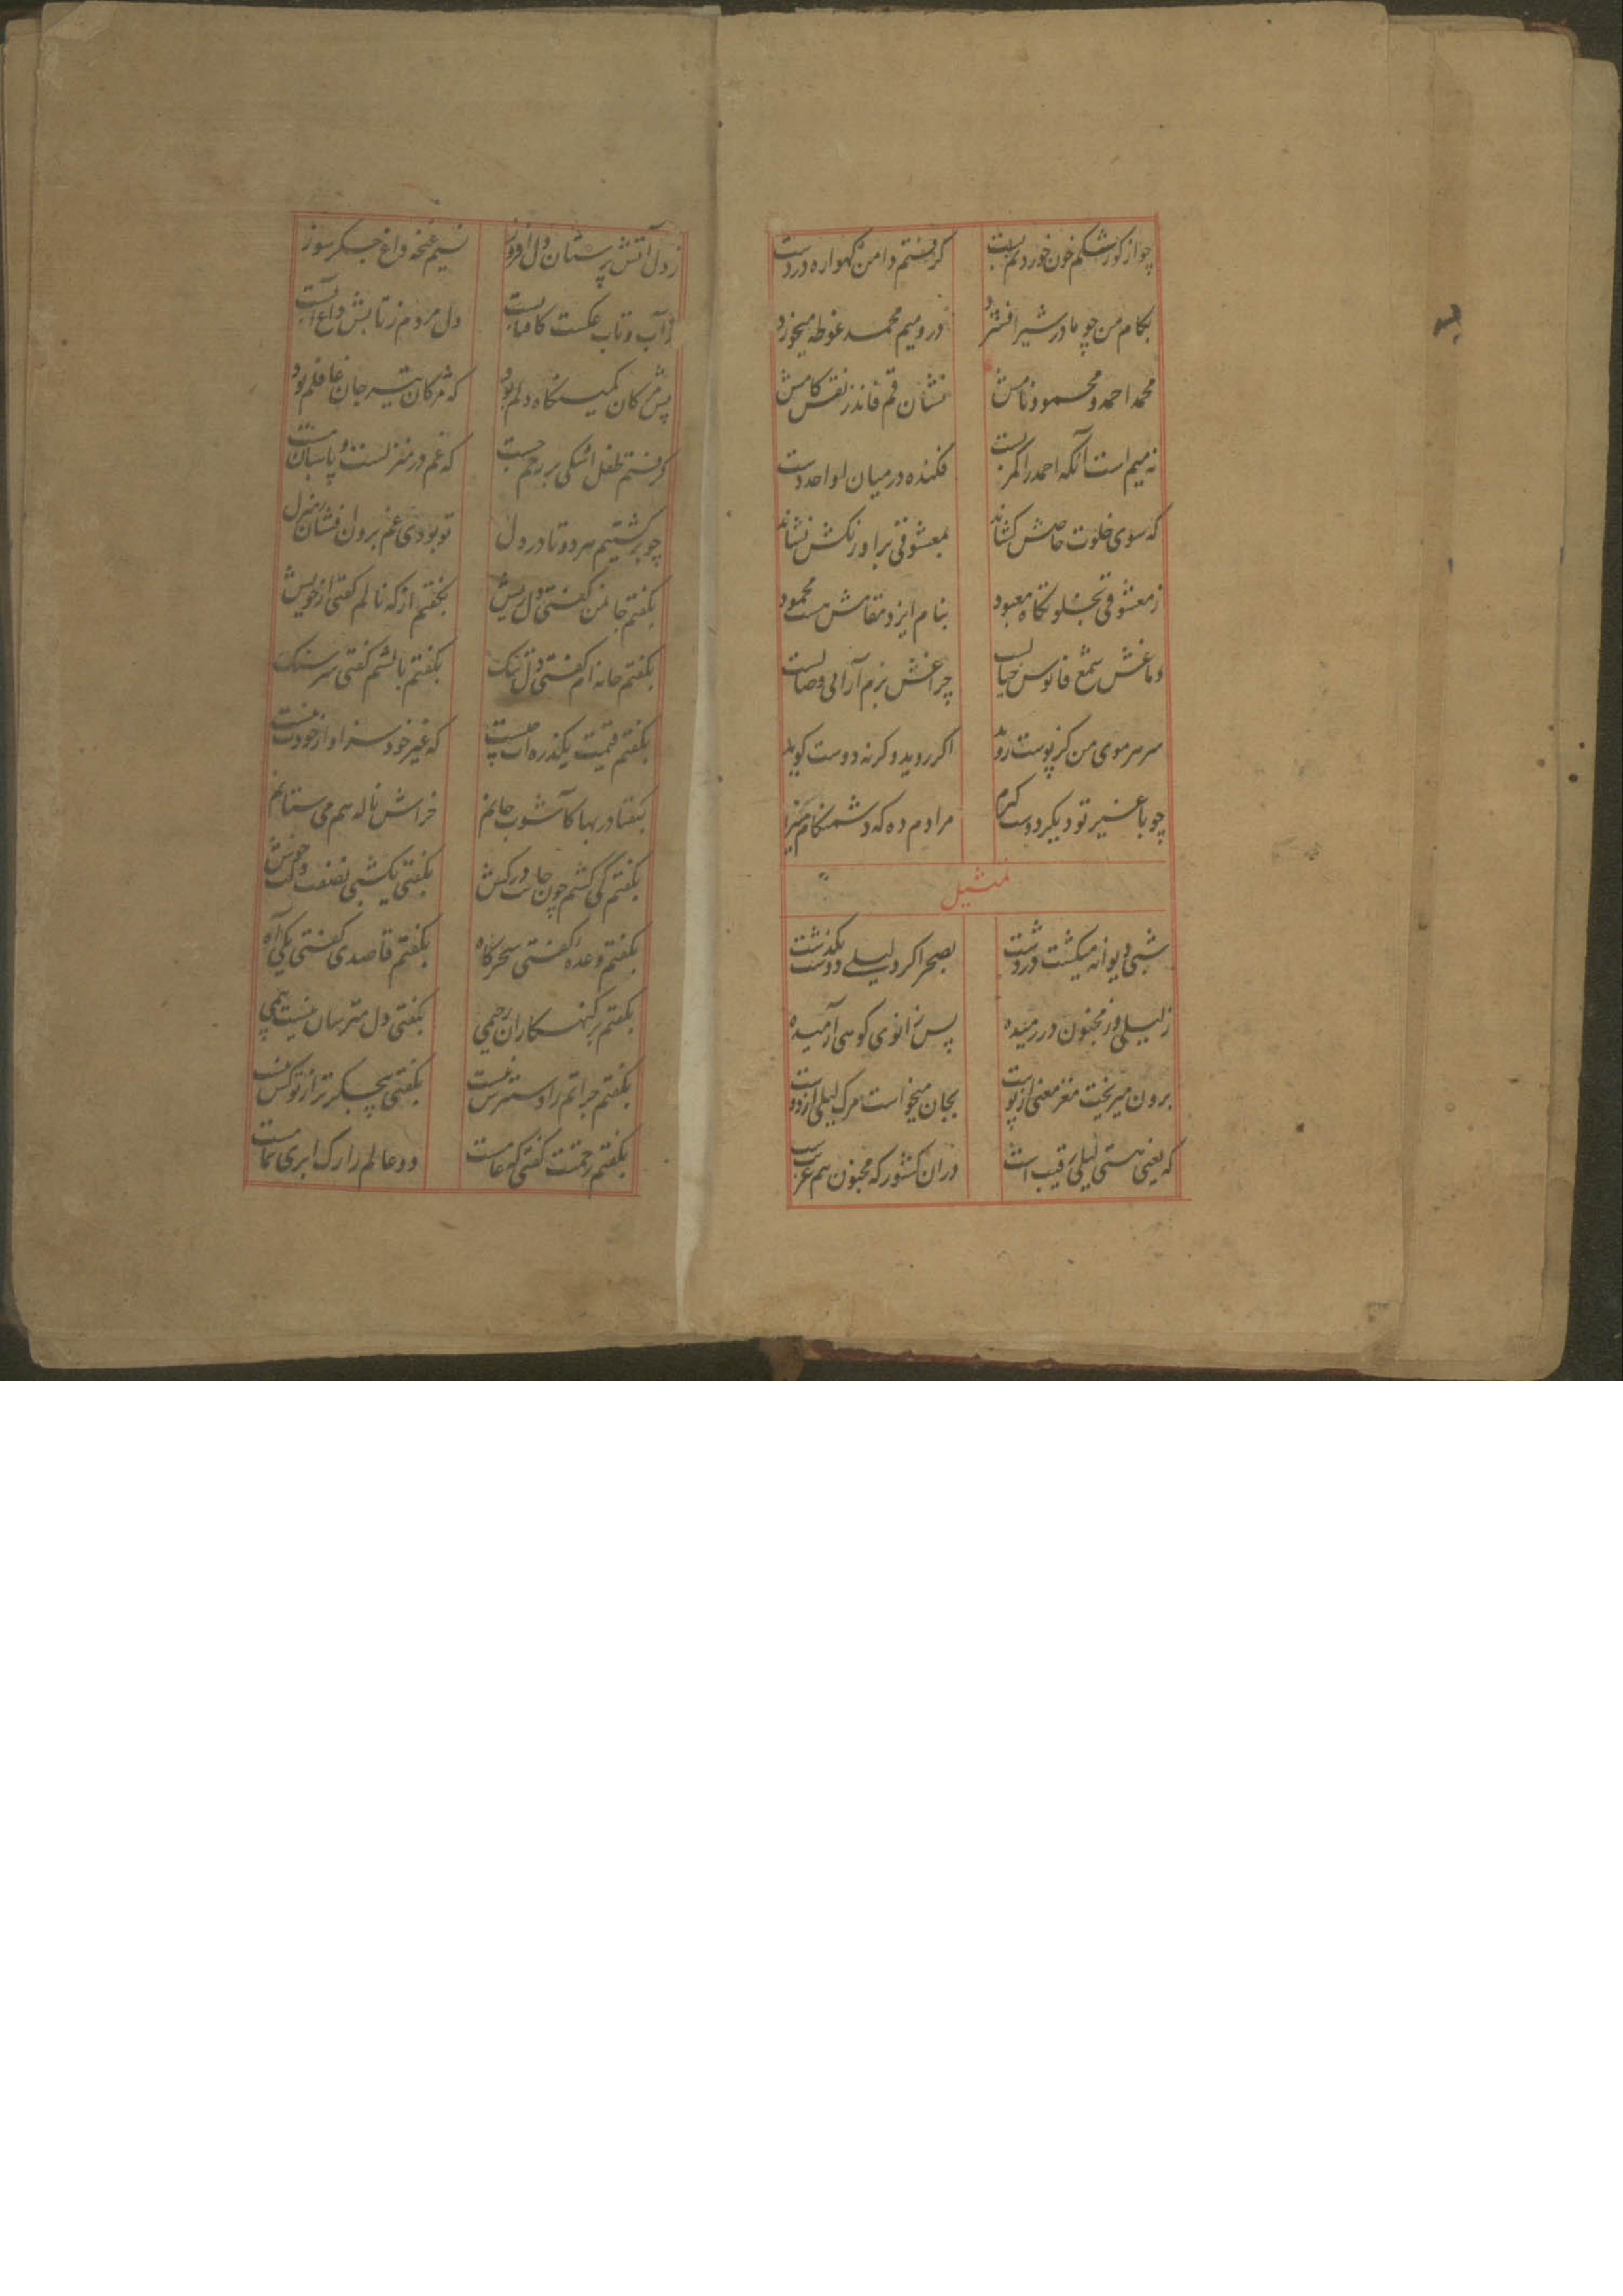 چو از کور شکم خون خوردنم بست گرفتم دامن گهواره در دست
بکام من چو مادر شیر افشرد درو میم محمد غوطه میخورد
محمد احمد و محمود نامش نشان قم فانذر نقش کامش
نه میم است آنکه احمد را کمر بست فکنده در میان او احد دست
که سوی خلوت خاصش کشاند بمعشوقی براورنکش نشاند
ز معشوقی تجلوتکاه معبود بنام ایزد مقامش هست محمود
دماغش شمع فانوس خیالست چراغش بزم آرای وصالست
سر هر موی من کز پوست روید اگر روید و کرنه دوست کوید
چو با غیر تو دیکر دوست کیرم مرا دم ده که دشمنکام میرم
تمثیل
شبی دیوانه میکشت در دشت بصحرا کرد لیلی دوست بکذشت
ز لیلی وز مجنون در رمیده پس زانوی کوهی آرمیده
برون میریخت مغز معنی از پوست بجان میخواست مرک لیلی از دوست
که یعنی هستی لیلی رقیب است دران کشور که مجنون هم غریب است
ز دل آتش پرستان دل افروز نسیم غنچه داغ جگر سوز
ز آب و تاب عکست کافتابست دل مردم ز تابش داغ آبست
پس مژکان کمینکاه دلم بود که مژکان تیر جان غافلم بود
کرفتم طفل اشکی بر رخم جست که غم در منزلست و پاسبان مست
چو برکشتیم هر دو تا در دل تو بودی غم برون افشان ز منزل
بکفتم جانمن کفتی دل ریش بکفتم از که نالم کفتی از خویش
بکفتم خانه ام کفتی دل تنک بکفتم بالشم کفتی سر سنک
بکفتم قیمت یکذره ات چیست که غیر خود سزاوار خودت نیست
بکفتا در بها کاشوب جانم خراش ناله هم می ستانم
بکفتم کی کشم چون جانت در کش بکفتی یکشبی نصفت و خوش
بکفتم وعده کفتی سحرکاه بکفتم قاصدی کفتی یکی آه
بکفتم بر کنهکاران رحیمی بکفتی دل مترسان نیست بیمی
بکفتم جراتم را دسترس نیست بکفتی بیجکر تر از تو کس نیست
بکفتم رحمتت کفتی که عامست دو عالم را رک ابری تمامست